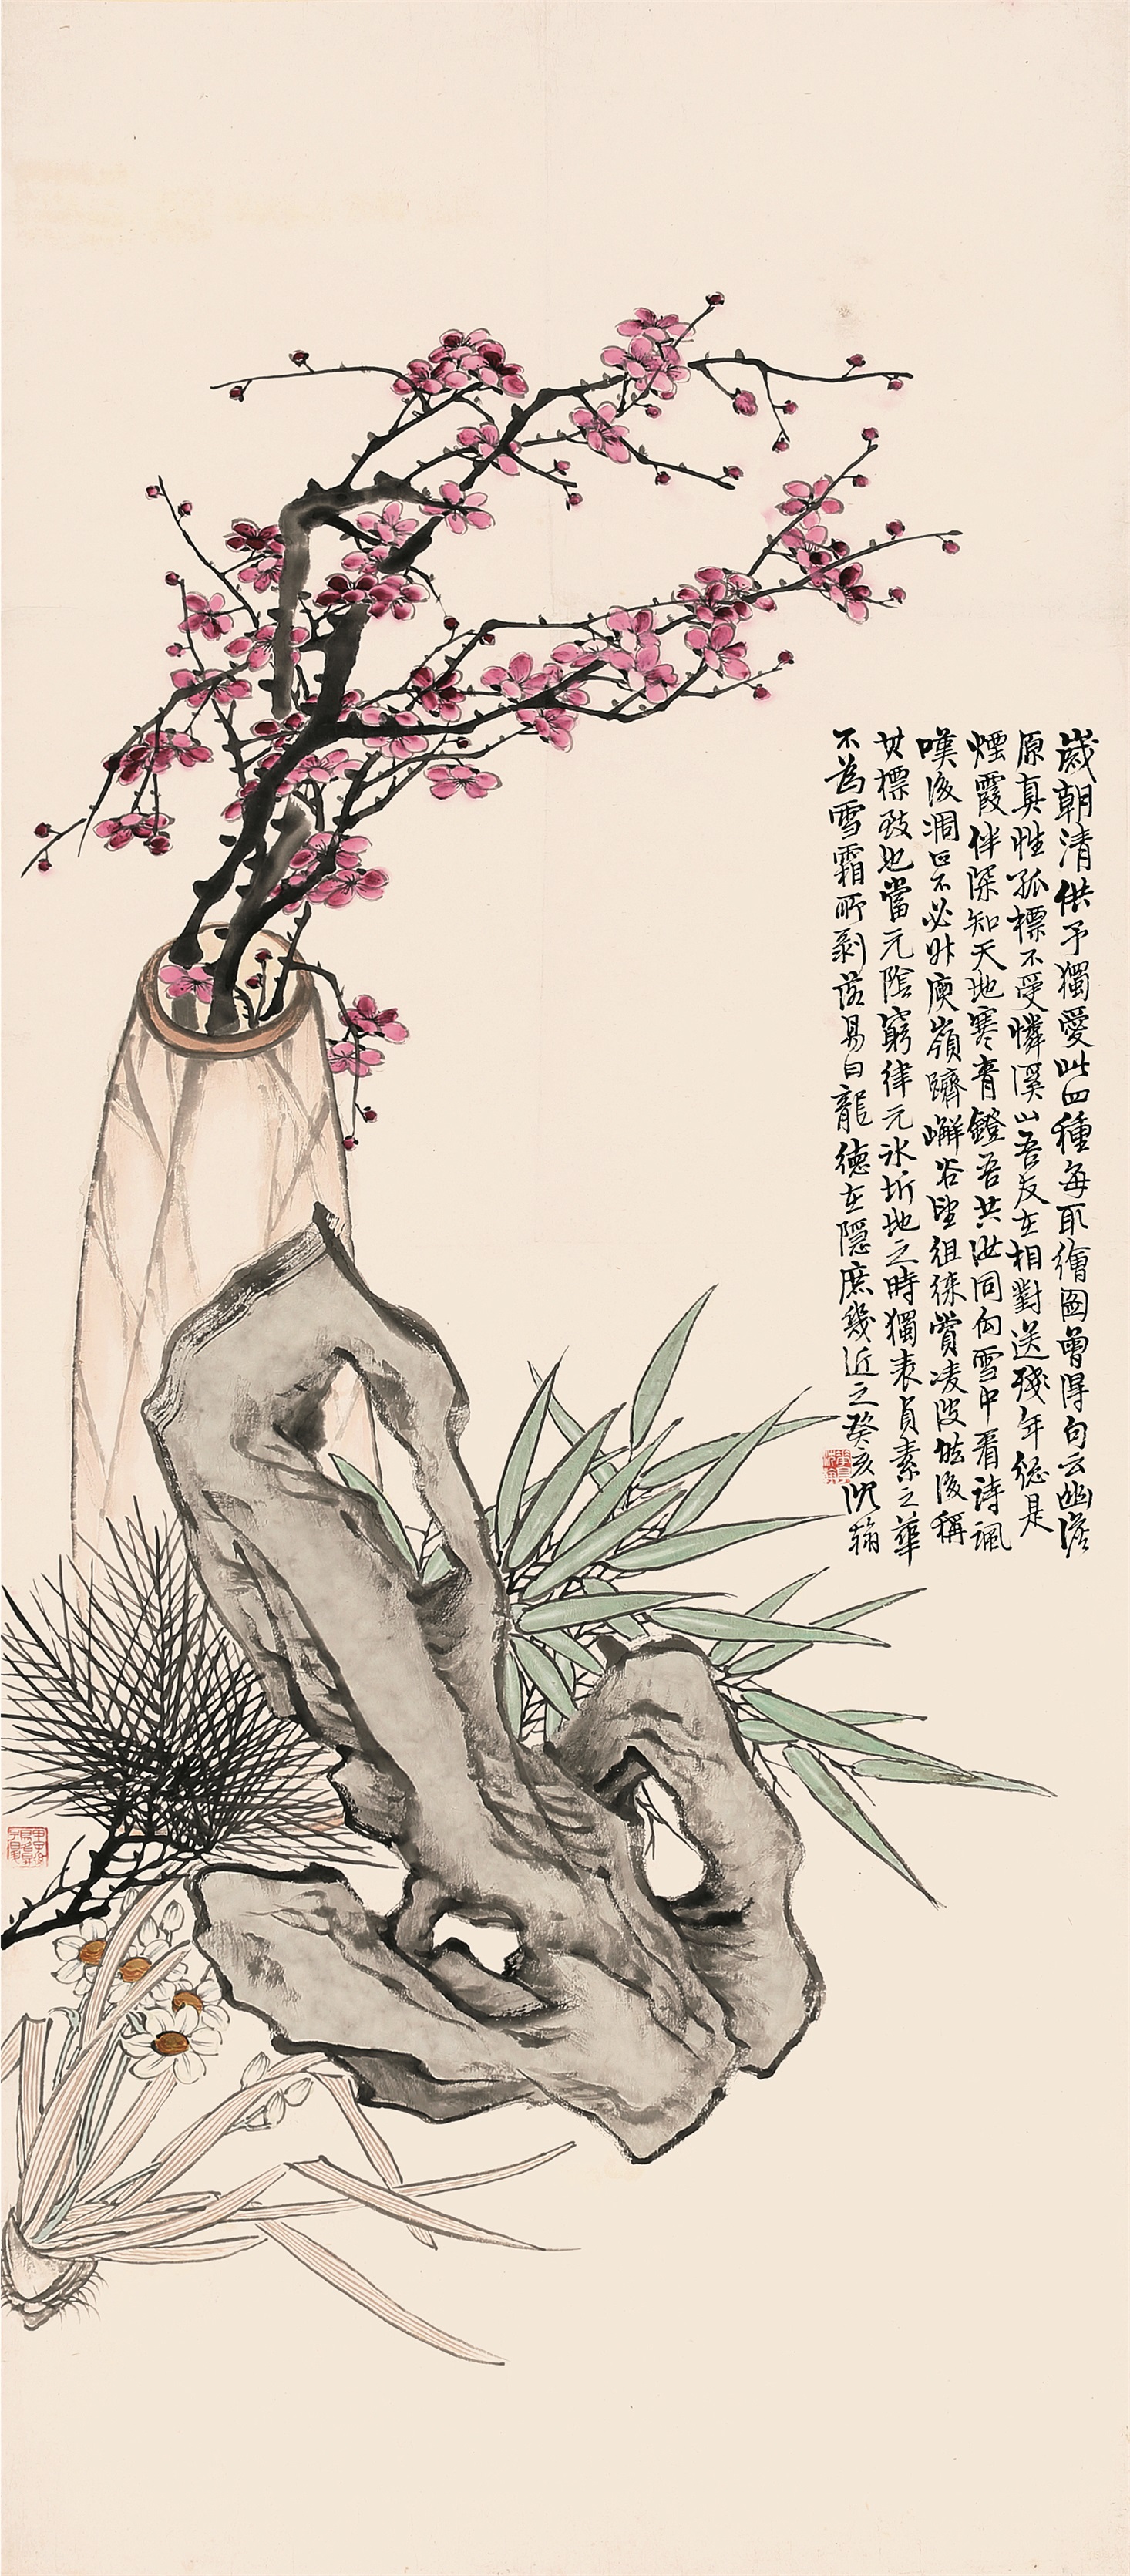 歲朝清供予獨愛此四種每取繪圖曾得句云幽澹
原真性孤標不受憐溪山吾友在相對送殘年總是
煙霞伴深知天地寒青鐙吾共汝同向雪中看詩諷
嘆後凋口不必外庾嶺躋嶰谷陟徂徠賞凌波然後稱
其標致也當元陰窮律元冰坼地之時獨表貞素之華
不為雪霜所剝落易曰龍德在隱庶幾近之癸亥沈翰